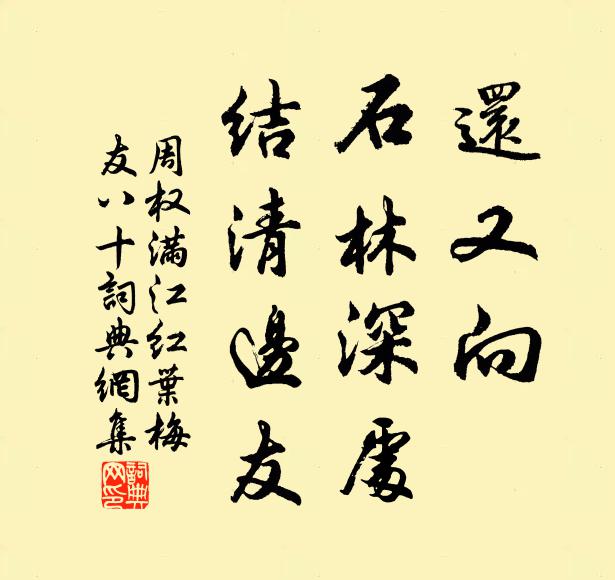 還又向
石林深處
结清邊友
周权滿江红葉梅
友八十詞典網集
詞典
网印